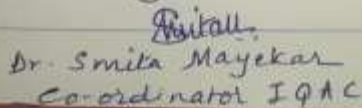 Dr. Smita Mayekar
Co-ordinator IQAC